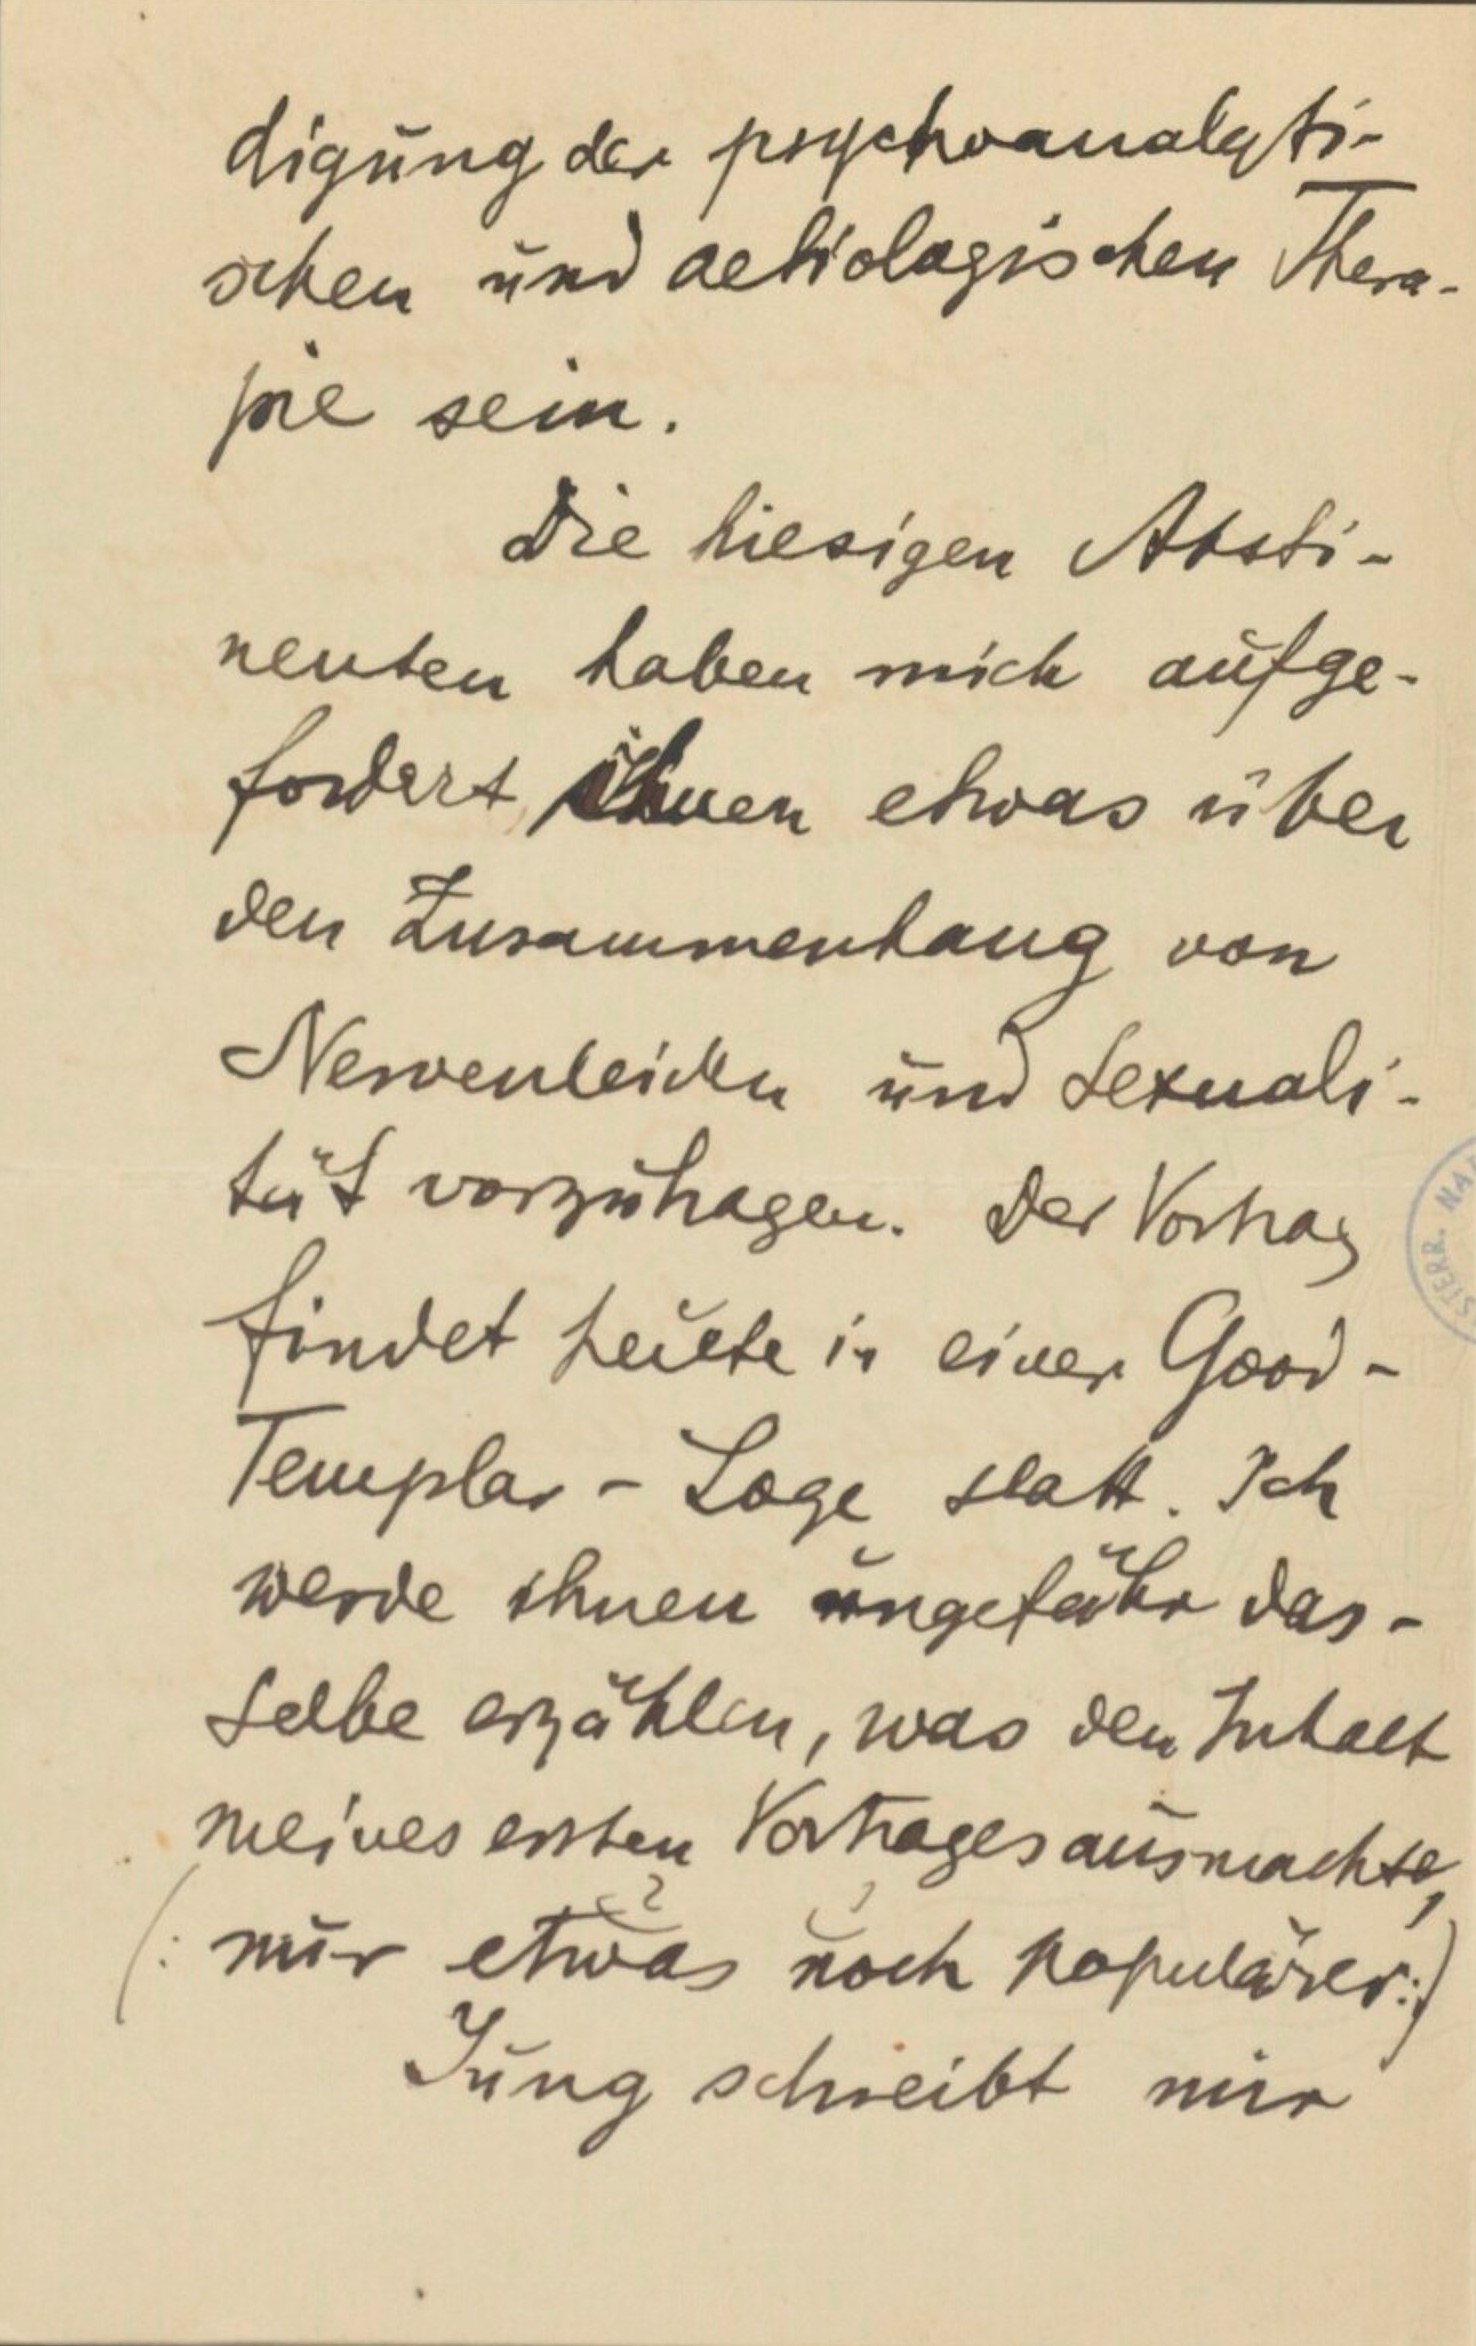 digung der psychoanalyti-
schen und aetiologischen Thera-
pie sein.
Die hiesigen Absti-
nenten haben mich aufge-
fordert, ihnen etwas über
den Zusammenhang von
Nervenleiden und Sexuali-
tät vorzutragen. Der Vortrag
findet heute in einer Good-
Templar-Loge statt. Ich
werde ihnen ungefähr das-
selbe erzählen, was den Inhalt
meines ersten Vortrages ausmachte,
(: nur etwas noch populärer :)
Jung schreibt mir
STERR. NA